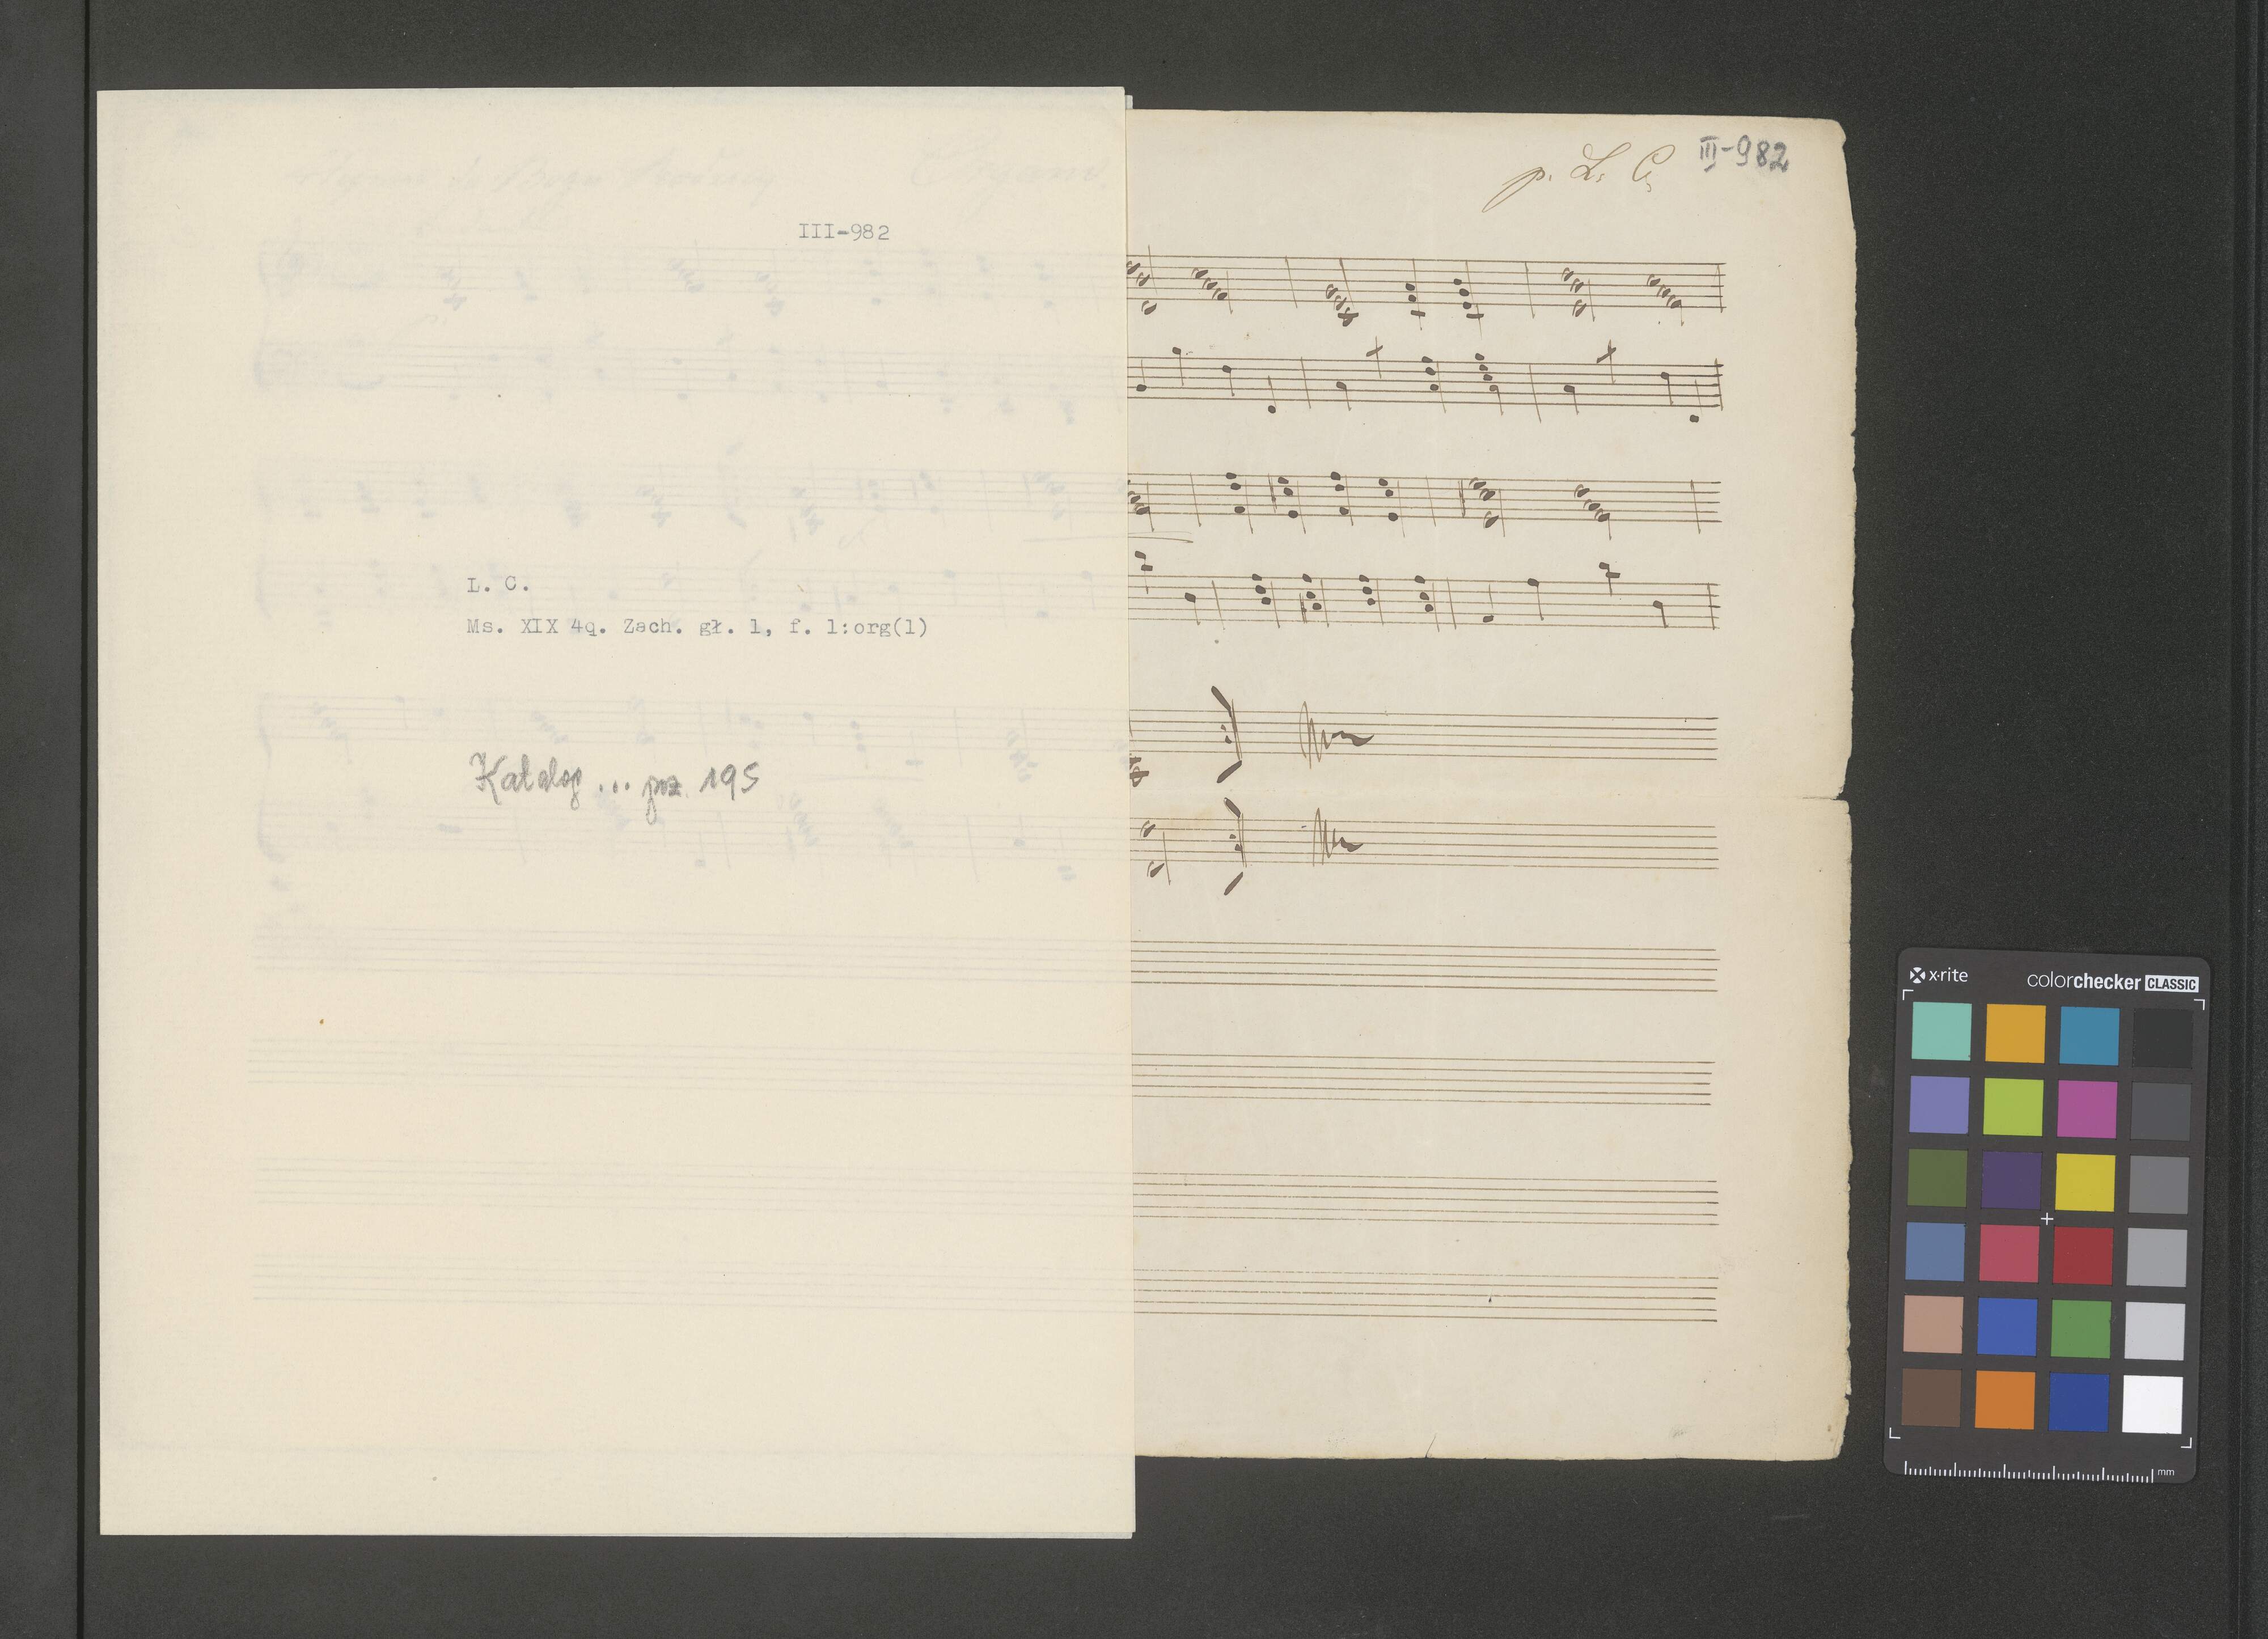 III-982
L. C.
Ms. XIX 4q. Zach. gł. 1, f. 1:org(1)
Katalog ... poz. 195
p. L. C.
III-982
x·rite
colorchecker CLASSIC
mm